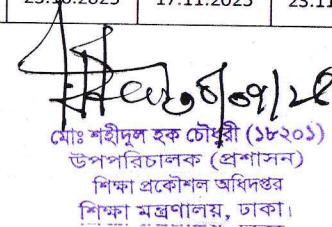 17.11.2025
মোঃ শহীদুল হক চৌধুরী (১৮২০১)
উপপরিচালক (প্রশাসন)
শিক্ষা প্রকৌশল অধিদপ্তর
শিক্ষা মন্ত্রণালয়, ঢাকা।